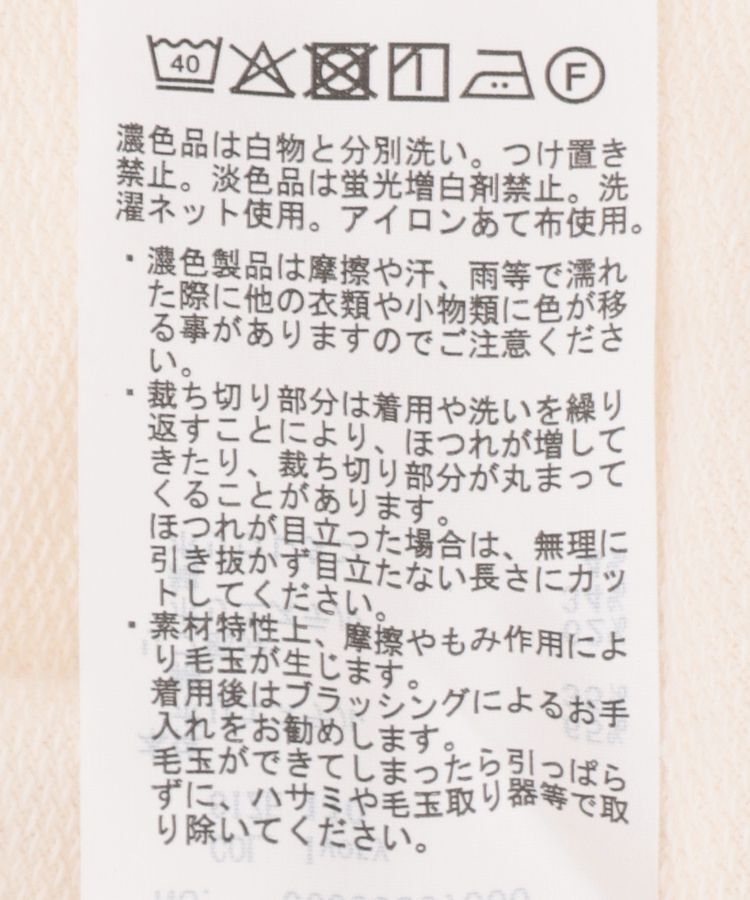 40 F
濃色品は白物と分別洗い。つけ置き
禁止。淡色品は蛍光増白剤禁止。洗
濯ネット使用。アイロンあて布使用。
・濃色製品は摩擦や汗、雨等で濡れ
た際に他の衣類や小物類に色が移
る事がありますのでご注意くださ
い。
・裁ち切り部分は着用や洗いを繰り
返すことにより、ほつれが増して
きたり、裁ち切り部分が丸まって
くることがあります。
ほつれが目立った場合は、無理に
引き抜かず目立たない長さにカッ
トしてください。
・素材特性上、摩擦やもみ作用によ
り毛玉が生じます。
着用後はブラッシングによるお手
入れをお勧めします。
毛玉ができてしまったら引っぱら
ずに、ハサミや毛玉取り器等で取
り除いてください。